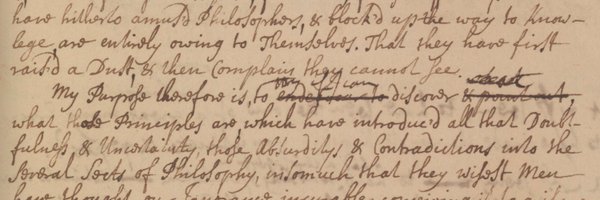 have hitherto amus'd Philosophers, & block'd up the way to Know-
lege, are entirely owing to Themselves. That they have first
rais'd a Dust, & then Complain they cannot see.
My Purpose therefore is, to try if I can discover & point out,
what those Principles are, which have introduc'd all that Doubt-
fulness & Uncertainty, those Absurditys & Contradictions into the
several Sects of Philosophy, insomuch that they wisest Men
have thought our Ignorance incurable, conceiving it to arise